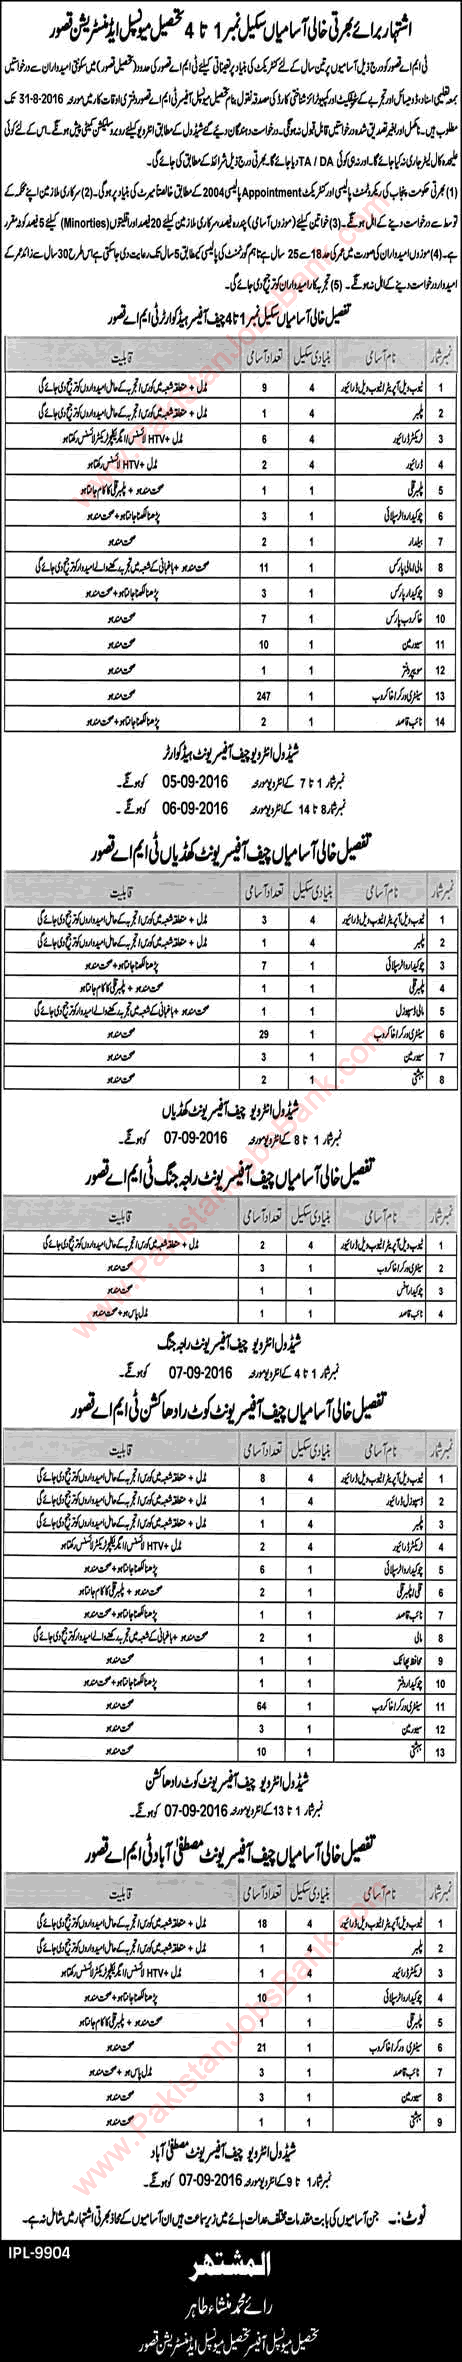 اشتہار برائے بھرتی خالی آسامیاں سکیل نمبر 1 تا 4 تحصیل میونسپل ایڈمنسٹریشن قصور
ٹی ایم اے قصور کو درج ذیل آسامیوں پر تین سال کے لئے کنٹریکٹ کی بنیاد پر تعیناتی کیلئے ٹی ایم اے قصور کی حدود (تحصیل قصور) میں سکونتی امیدواران سے درخواستیں
بمعہ تعلیمی اسناد و ڈومیسائل اور تجربے کے سرٹیفکیٹ اور کمپیوٹرائزڈ شناختی کارڈ کی مصدقہ نقول بنام تحصیل میونسپل آفیسر ٹی ایم اے قصور دفتری اوقات کار میں مورخہ 31-8-2016 تک
مطلوب ہیں۔ نامکمل اور بغیر تصدیق شدہ درخواستیں قابل قبول نہ ہوگی۔ درخواست دہندگان دیئے گئے شیڈول کے مطابق انٹرویو کیلئے روبرو سلیکشن کمیٹی پیش ہونگے۔ اس کے لئے کوئی
علیحدہ کال لیٹر جاری نہ کیا جائے گا۔ اور نہ ہی کوئی TA / DA دیا جائے گا۔ بھرتی درج ذیل شرائط کے مطابق کی جائے گی۔
(1) بھرتی حکومت پنجاب کی ریکروٹمنٹ پالیسی اور کنٹریکٹ Appointment پالیسی 2004 کے مطابق خالصتاً میرٹ کی بنیاد پر ہوگی۔ (2) سرکاری ملازمین اپنے محکمہ کے
توسط سے درخواست دینے کے اہل ہونگے۔ (3) خواتین کیلئے (موزوں آسامی) پندرہ فیصد، سرکاری ملازمین کیلئے 20 فیصد اور اقلیتوں (Minorties) کیلئے 5 فیصد کوٹہ مقرر
ہے۔ (4) موزوں امیدواران کی صورت میں عمر کی حد 18 سے 25 سال ہے تاہم گورنمنٹ کی پالیسی کے مطابق 5 سال تک رعایت دی جا سکتی ہے اس طرح 30 سال سے زائد عمر کے
امیدوار درخواست دینے کے اہل نہ ہونگے۔ (5) تجربہ کار امیدواران کو ترجیح دی جائے گی۔
تفصیل خالی آسامیاں سکیل نمبر 1 تا 4 چیف آفیسر ہیڈ کوارٹر ٹی ایم اے قصور
نمبر شمار نام آسامی بنیادی سکیل تعداد آسامی قابلیت
1 ٹیوب ویل آپریٹر / ٹیوب ویل ڈرائیور 4 9 مڈل + متعلقہ شعبہ میں کورس / تجربہ کے حامل امیدواروں کو ترجیح دی جائے گی
2 پلمبر 4 1 مڈل + متعلقہ شعبہ میں کورس / تجربہ کے حامل امیدواروں کو ترجیح دی جائے گی
3 ٹریکٹر ڈرائیور 4 6 مڈل + HTV لائسنس / ایگریکلچر ٹریکٹر لائسنس رکھتا ہو
4 ڈرائیور 4 2 مڈل + HTV لائسنس رکھتا ہو
5 پلمبر قلی 1 1 صحت مند ہو + پلمبر قلی کا کام جانتا ہو
6 چوکیدار واٹر سپلائی 1 3 پڑھنا لکھنا جانتا ہو + صحت مند ہو
7 بیلدار 1 2 صحت مند ہو
8 مالی / مالی پارکس 1 11 صحت مند ہو + باغبانی کے شعبہ میں تجربہ رکھنے والے امیدوار کو ترجیح دی جائے گی
9 چوکیدار پارکس 1 3 پڑھنا لکھنا جانتا ہو + صحت مند ہو
10 خاکروب پارکس 1 7 صحت مند ہو
11 سیور مین 1 10 صحت مند ہو
12 سویپر دفتر 1 1 صحت مند ہو
13 سینٹری ورکر / خاکروب 1 247 صحت مند ہو
14 نائب قاصد 1 2 پڑھنا لکھنا جانتا ہو + صحت مند ہو
شیڈول انٹرویو چیف آفیسر یونٹ ہیڈ کوارٹر
نمبر شمار 1 تا 7 کے انٹرویو مورخہ 05-09-2016 کو ہونگے۔
نمبر شمار 8 تا 14 کے انٹرویو مورخہ 06-09-2016 کو ہونگے۔
تفصیل خالی آسامیاں چیف آفیسر یونٹ کھڈیاں ٹی ایم اے قصور
نمبر شمار نام آسامی بنیادی سکیل تعداد آسامی قابلیت
1 ٹیوب ویل آپریٹر / ٹیوب ویل ڈرائیور 4 3 مڈل + متعلقہ شعبہ میں کورس / تجربہ کے حامل امیدواروں کو ترجیح دی جائے گی
2 پلمبر 4 1 مڈل + متعلقہ شعبہ میں کورس / تجربہ کے حامل امیدواروں کو ترجیح دی جائے گی
3 چوکیدار واٹر سپلائی 1 7 پڑھنا لکھنا جانتا ہو + صحت مند ہو
4 پلمبر قلی 1 1 صحت مند ہو + پلمبر قلی کا کام جانتا ہو
5 مالی ڈسپوزل 1 1 صحت مند ہو + باغبانی کے شعبہ میں تجربہ رکھنے والے امیدوار کو ترجیح دی جائے گی
6 سینٹری ورکر / خاکروب 1 29 صحت مند ہو
7 سیور مین 1 3 صحت مند ہو
8 بہشتی 1 2 صحت مند ہو
شیڈول انٹرویو چیف آفیسر یونٹ کھڈیاں
نمبر شمار 1 تا 8 کے انٹرویو مورخہ 07-09-2016 کو ہونگے۔
تفصیل خالی آسامیاں چیف آفیسر یونٹ راجہ جنگ ٹی ایم اے قصور
نمبر شمار نام آسامی بنیادی سکیل تعداد آسامی قابلیت
1 ٹیوب ویل آپریٹر / ٹیوب ویل ڈرائیور 4 2 مڈل + متعلقہ شعبہ میں کورس / تجربہ کے حامل امیدواروں کو ترجیح دی جائے گی
2 سینٹری ورکر / خاکروب 1 3 صحت مند ہو
3 چوکیدار آفس 1 1 صحت مند ہو
4 نائب قاصد 1 1 مڈل پاس ہو + صحت مند ہو
شیڈول انٹرویو چیف آفیسر یونٹ راجہ جنگ
نمبر شمار 1 تا 4 کے انٹرویو مورخہ 07-09-2016 کو ہونگے۔
تفصیل خالی آسامیاں چیف آفیسر یونٹ کوٹ رادھا کشن ٹی ایم اے قصور
نمبر شمار نام آسامی بنیادی سکیل تعداد آسامی قابلیت
1 ٹیوب ویل آپریٹر / ٹیوب ویل ڈرائیور 4 8 مڈل + متعلقہ شعبہ میں کورس / تجربہ کے حامل امیدواروں کو ترجیح دی جائے گی
2 ڈسپوزل ڈرائیور 4 1 مڈل + متعلقہ شعبہ میں کورس / تجربہ کے حامل امیدواروں کو ترجیح دی جائے گی
3 پلمبر 4 1 مڈل + متعلقہ شعبہ میں کورس / تجربہ کے حامل امیدواروں کو ترجیح دی جائے گی
4 ٹریکٹر ڈرائیور 4 2 مڈل + HTV لائسنس / ایگریکلچر ٹریکٹر لائسنس رکھتا ہو
5 چوکیدار واٹر سپلائی 1 6 پڑھنا لکھنا جانتا ہو + صحت مند ہو
6 قلی / پلمبر قلی 1 2 صحت مند ہو + پلمبر قلی کا کام جانتا ہو
7 نائب قاصد 1 1 پڑھنا لکھنا جانتا ہو + صحت مند ہو
8 مالی 1 2 صحت مند ہو + باغبانی کے شعبہ میں تجربہ رکھنے والے امیدوار کو ترجیح دی جائے گی
9 محافظ پھاٹک 1 1 صحت مند ہو
10 چوکیدار دفتر 1 1 پڑھنا لکھنا جانتا ہو + صحت مند ہو
11 سینٹری ورکر / خاکروب 1 64 صحت مند ہو
12 سیور مین 1 3 صحت مند ہو
13 بہشتی 1 10 صحت مند ہو
شیڈول انٹرویو چیف آفیسر یونٹ کوٹ رادھا کشن
نمبر شمار 1 تا 13 کے انٹرویو مورخہ 07-09-2016 کو ہونگے۔
تفصیل خالی آسامیاں چیف آفیسر یونٹ مصطفیٰ آباد ٹی ایم اے قصور
نمبر شمار نام آسامی بنیادی سکیل تعداد آسامی قابلیت
1 ٹیوب ویل آپریٹر / ٹیوب ویل ڈرائیور 4 18 مڈل + متعلقہ شعبہ میں کورس / تجربہ کے حامل امیدواروں کو ترجیح دی جائے گی
2 پلمبر 4 1 مڈل + متعلقہ شعبہ میں کورس / تجربہ کے حامل امیدواروں کو ترجیح دی جائے گی
3 ٹریکٹر ڈرائیور 4 1 مڈل + HTV لائسنس / ایگریکلچر ٹریکٹر لائسنس رکھتا ہو
4 چوکیدار واٹر سپلائی 1 10 پڑھنا لکھنا جانتا ہو + صحت مند ہو
5 پلمبر قلی 1 1 صحت مند ہو + پلمبر قلی کا کام جانتا ہو
6 سینٹری ورکر / خاکروب 1 21 صحت مند ہو
7 نائب قاصد 1 3 مڈل پاس ہو + صحت مند ہو
8 سیور مین 1 3 صحت مند ہو
9 بہشتی 1 1 صحت مند ہو
شیڈول انٹرویو چیف آفیسر یونٹ مصطفیٰ آباد
نمبر شمار 1 تا 9 کے انٹرویو مورخہ 07-09-2016 کو ہونگے۔
نوٹ:۔ جن آسامیوں کی بابت مقدمات مختلف عدالت ہائے میں زیر سماعت ہیں ان آسامیوں کے محاذ بھرتی اشتہار میں شامل نہ ہے۔
IPL-9904
المشتہر
رائے محمد منشاء طاہر
تحصیل میونسپل آفیسر تحصیل میونسپل ایڈمنسٹریشن قصور
www.PakistanJobsBank.com
www.PakistanJobsBank.com
www.PakistanJobsBank.com
www.PakistanJobsBank.com